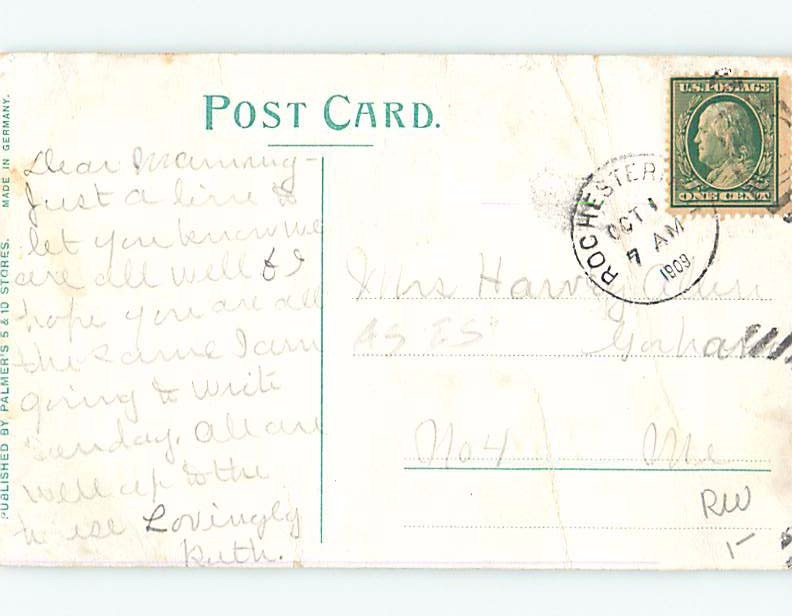 POST CARD.
MADE IN GERMANY.
PUBLISHED BY PALMER'S 5 & 10 STORES.
U.S. POSTAGE
ONE CENT
ROCHESTER
OCT 1
7 AM
1909
Dear Mammy-
Just a line to
let you know we
are all well & I
hope you are all
the same I am
going to write
Sunday. All are
well up to the
house Lovingly
Ruth.
Mrs Harvey
AS IS
Gorham
No 4 Me
RW
1-